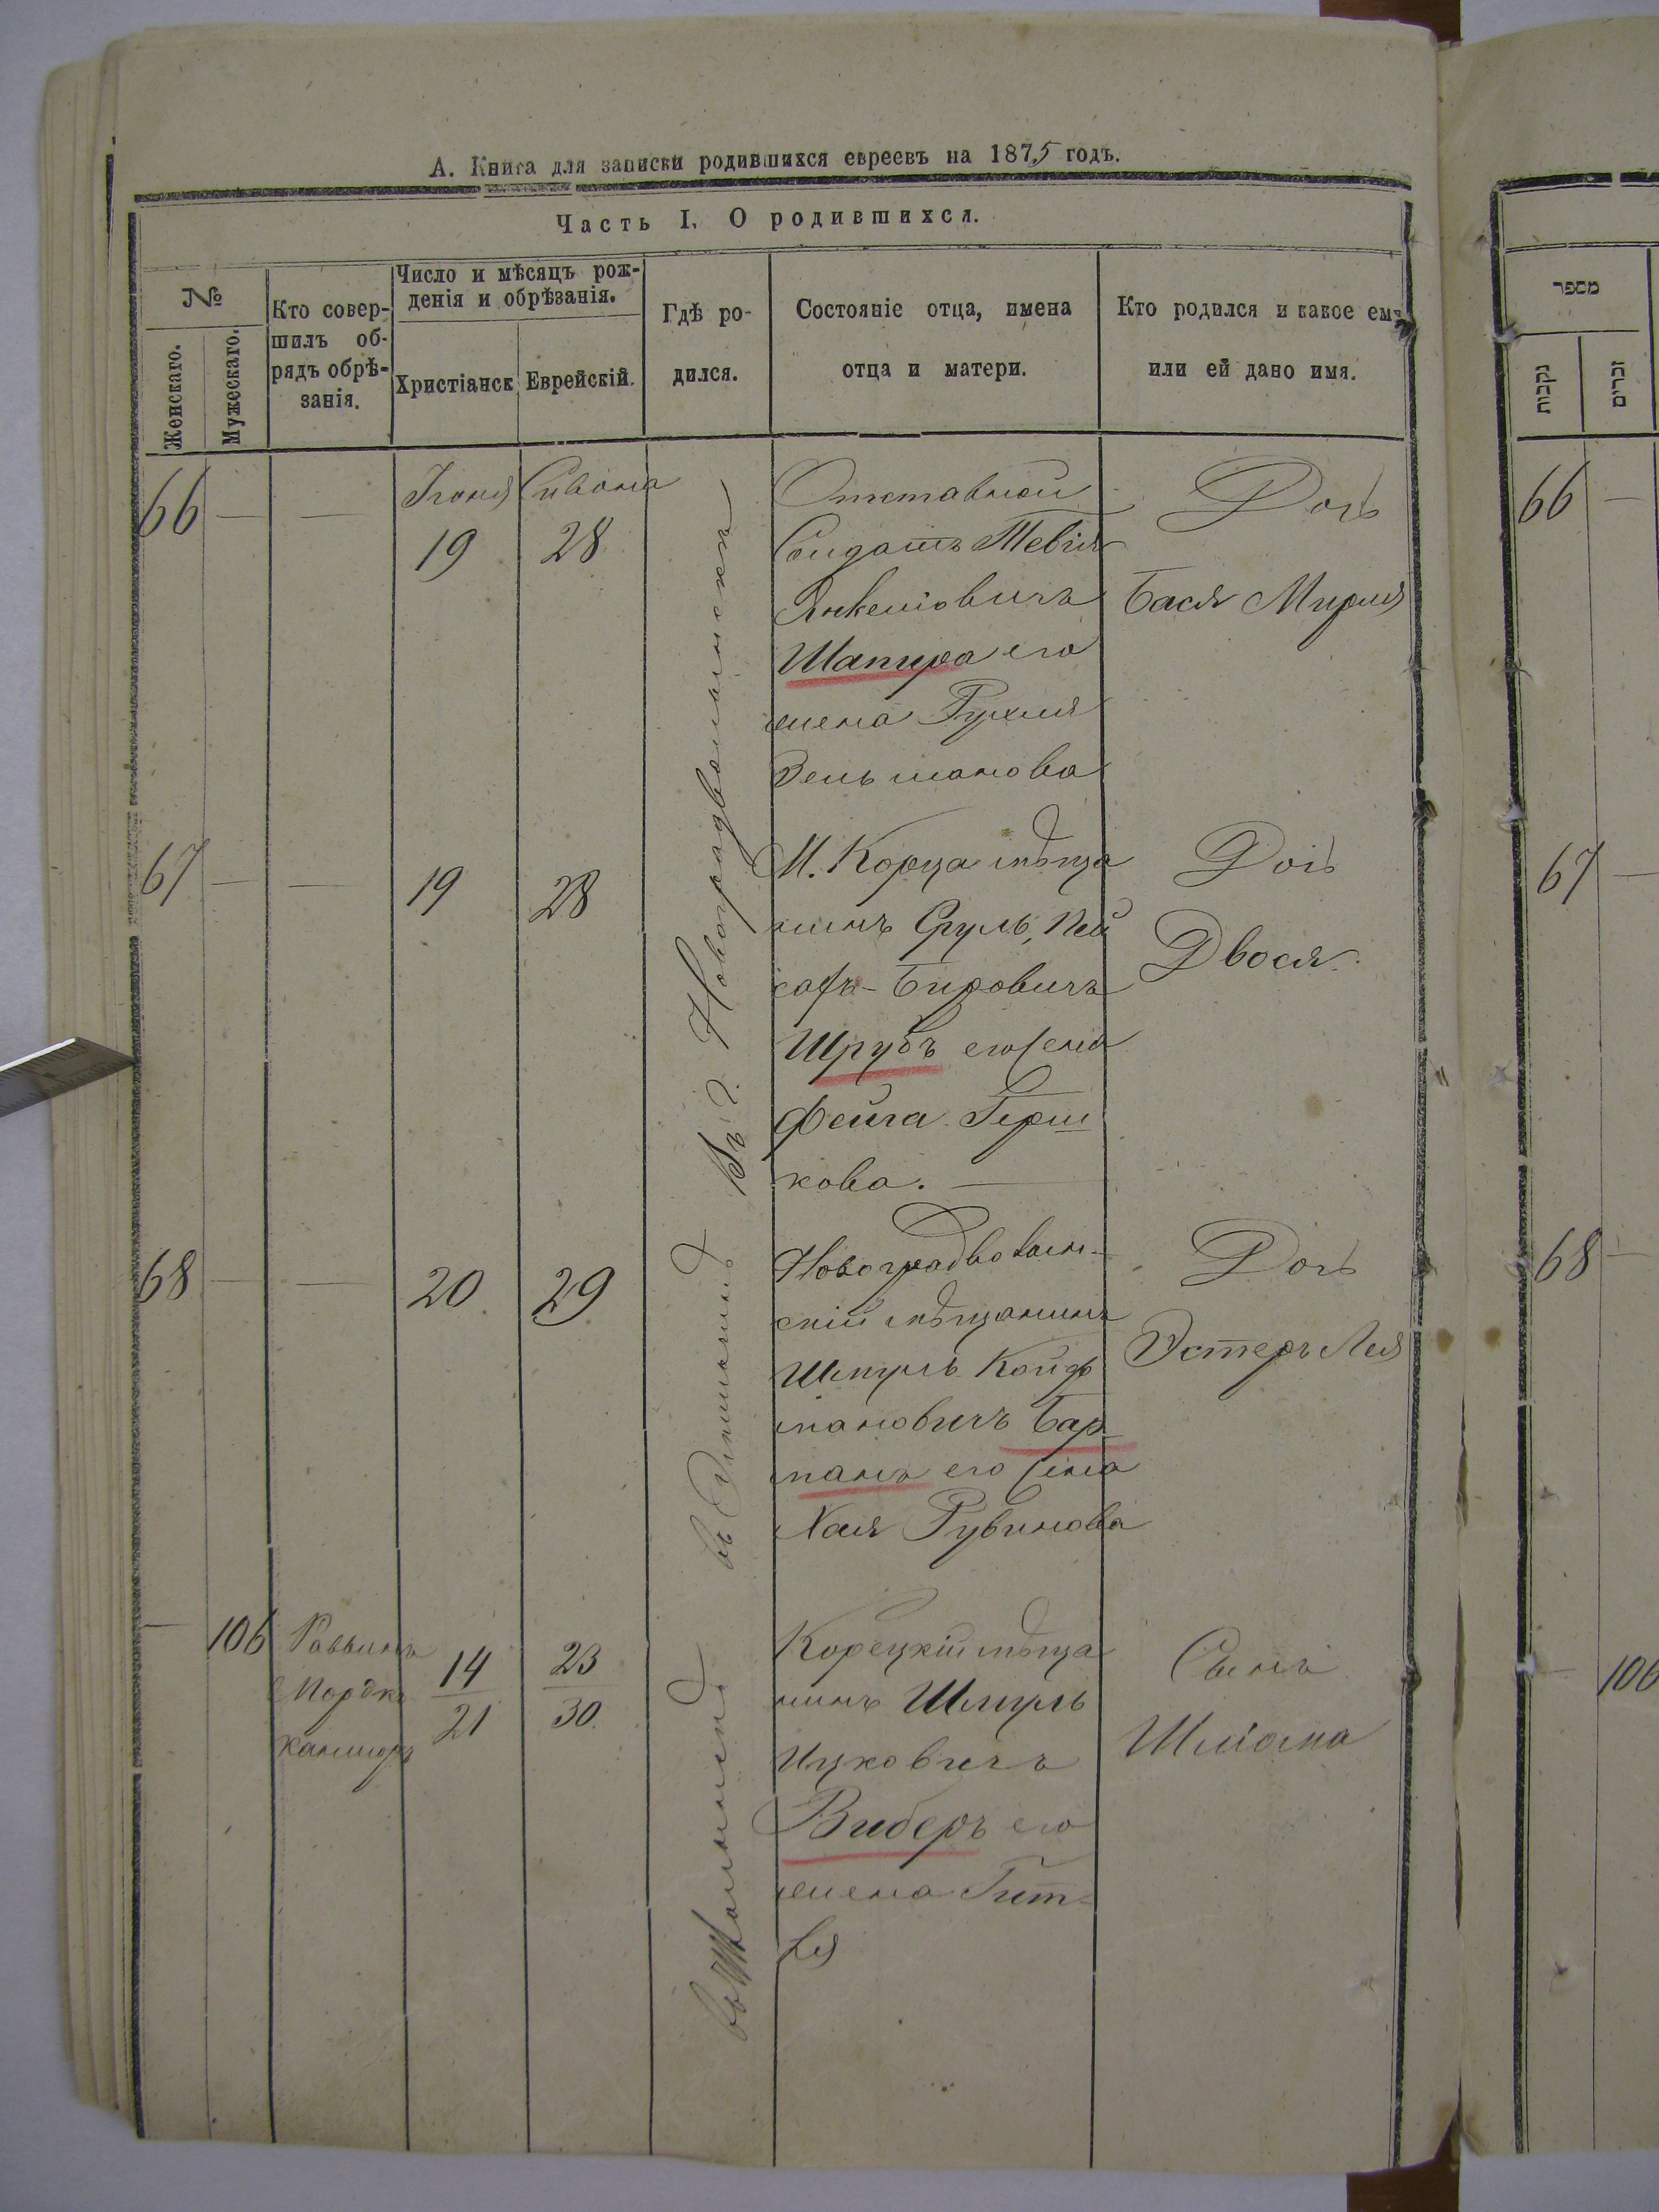 А. Книга для записки родившихся евреевъ на 1875 годъ.
Часть I. О родившихся.
№
Женскаго.
Мужескаго.
Кто совер-
шилъ об-
рядъ обрѣ-
занія.
Число и мѣсяцъ рож-
денія и обрѣзанія.
Христіанск
Еврейскій.
Гдѣ ро-
дился.
Состояніе отца, имена
отца и матери.
Кто родился и какое ему
или ей дано имя.
66 — — Іюня Сивона
19 28
Отставной
Солдатъ Тевія
Янкелiовичъ
Шапира его
жена Рухля
Зельманова
Дочь
Бася Мирля
67 — — 19 28
М. Корца мѣща
нинъ Сруль, Пей
сахъ-Бировичъ
Шрубъ его жена
Фейга Герш
кова. —
Дочь
Двося.
68 — — 20 29
Новоградволын-
скій мѣщанинъ
Шмуль Койф
мановичъ Бар
манъ его жена
Хая Рувинова
Дочь
Эстеръ Лея
— 106 Раввинъ
Мордко
14 23
21 30.
Корецкій мѣща
нинъ Шмуль
Ицковичъ
Виберъ его
жена Гит-
ля
Сынъ
Шлiома
Въ г. Новоградволынскѣ
מספר
נקבות
זכרים
66 —
67 —
68 —
— 106